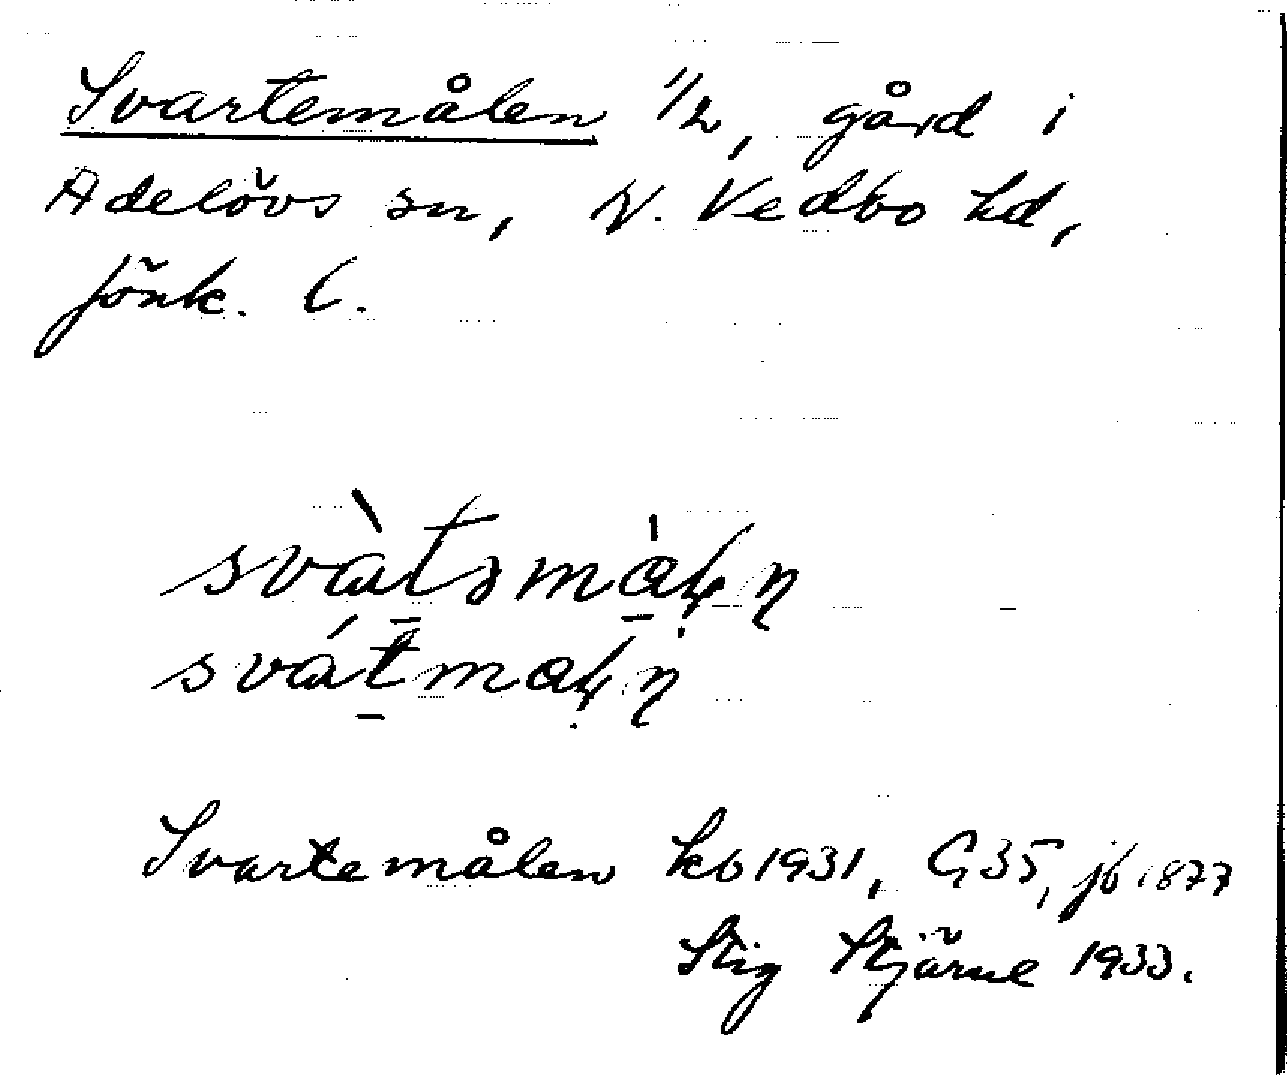 Svartemålen 1/2, gård i
Adelövs sn, N. Vedbo hd,
Jönk. l.
svàtəmàłn̥
svátmałn̥
Svartemålen kb 1931, G35, jb 1877
Stig Stjärne 1933.